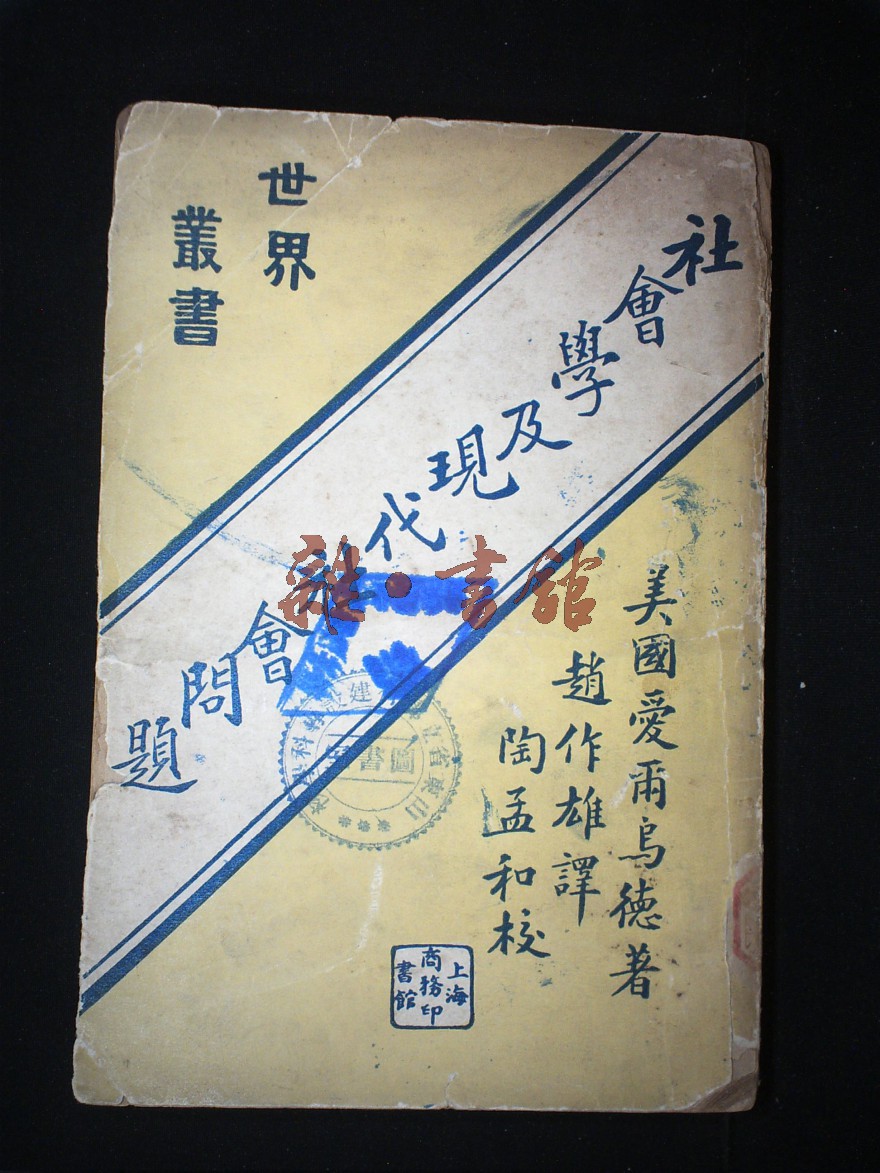 世界
叢書
社會學及現代社會問題
美國愛爾烏德著
趙作雄譯
陶孟和校
上海
商務印
書館
雜·書館
圖書